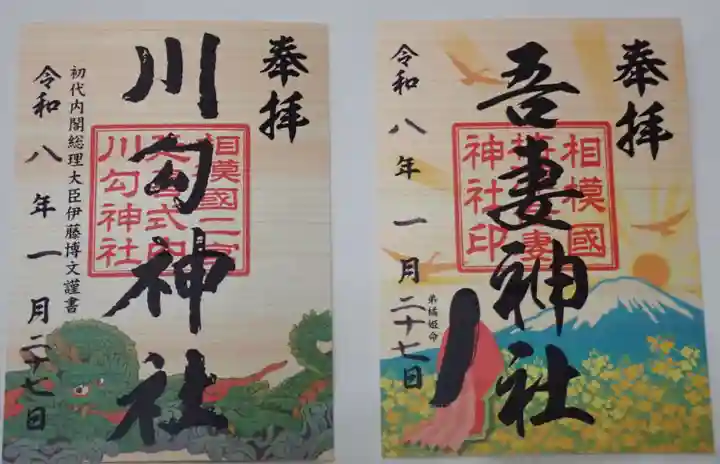 奉拝
川勾神社
相模國二宮
川勾神社
初代内閣総理大臣伊藤博文謹書
令和八年一月二十七日
奉拝
吾妻神社
相模國
神社印
弟橘姫命
令和八年一月二十七日